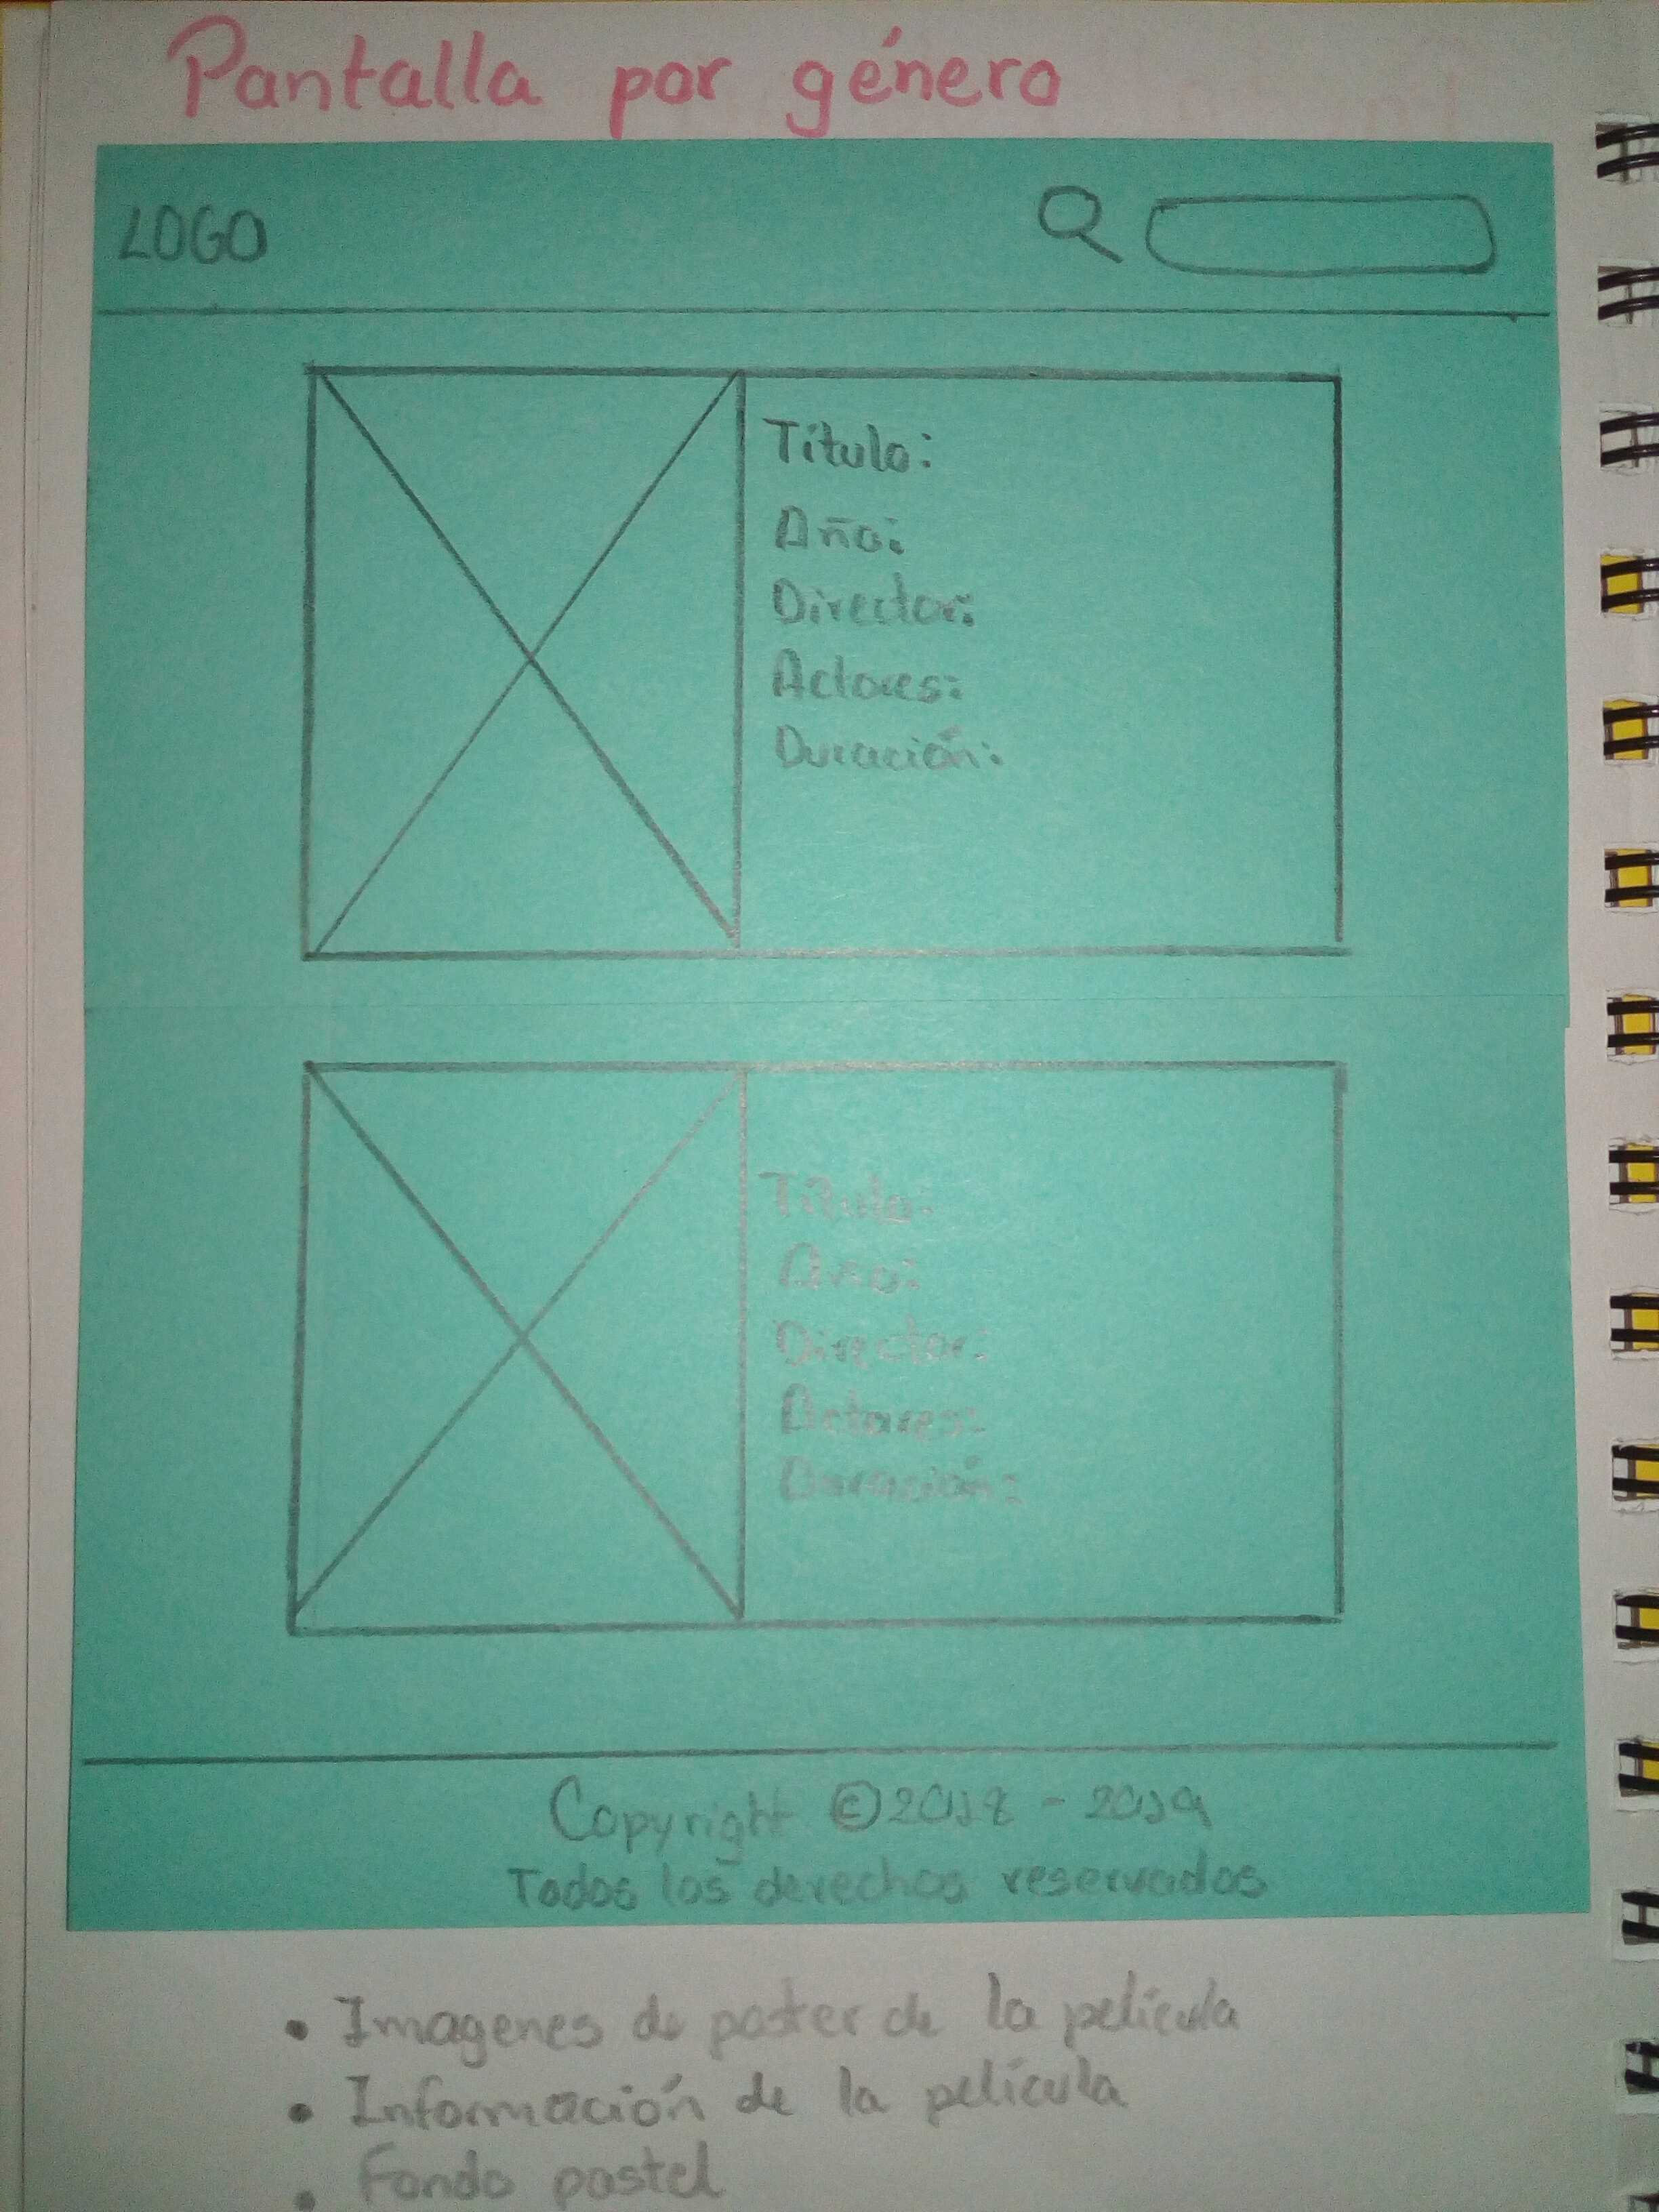 Pantalla por género
LOGO
Título:
Año:
Director:
Actores:
Duración:
Título:
Año:
Director:
Actores:
Duración:
Copyright ©2018 - 2019
Todos los derechos reservados
• Imagenes de poster de la película
• Información de la película
• Fondo pastel